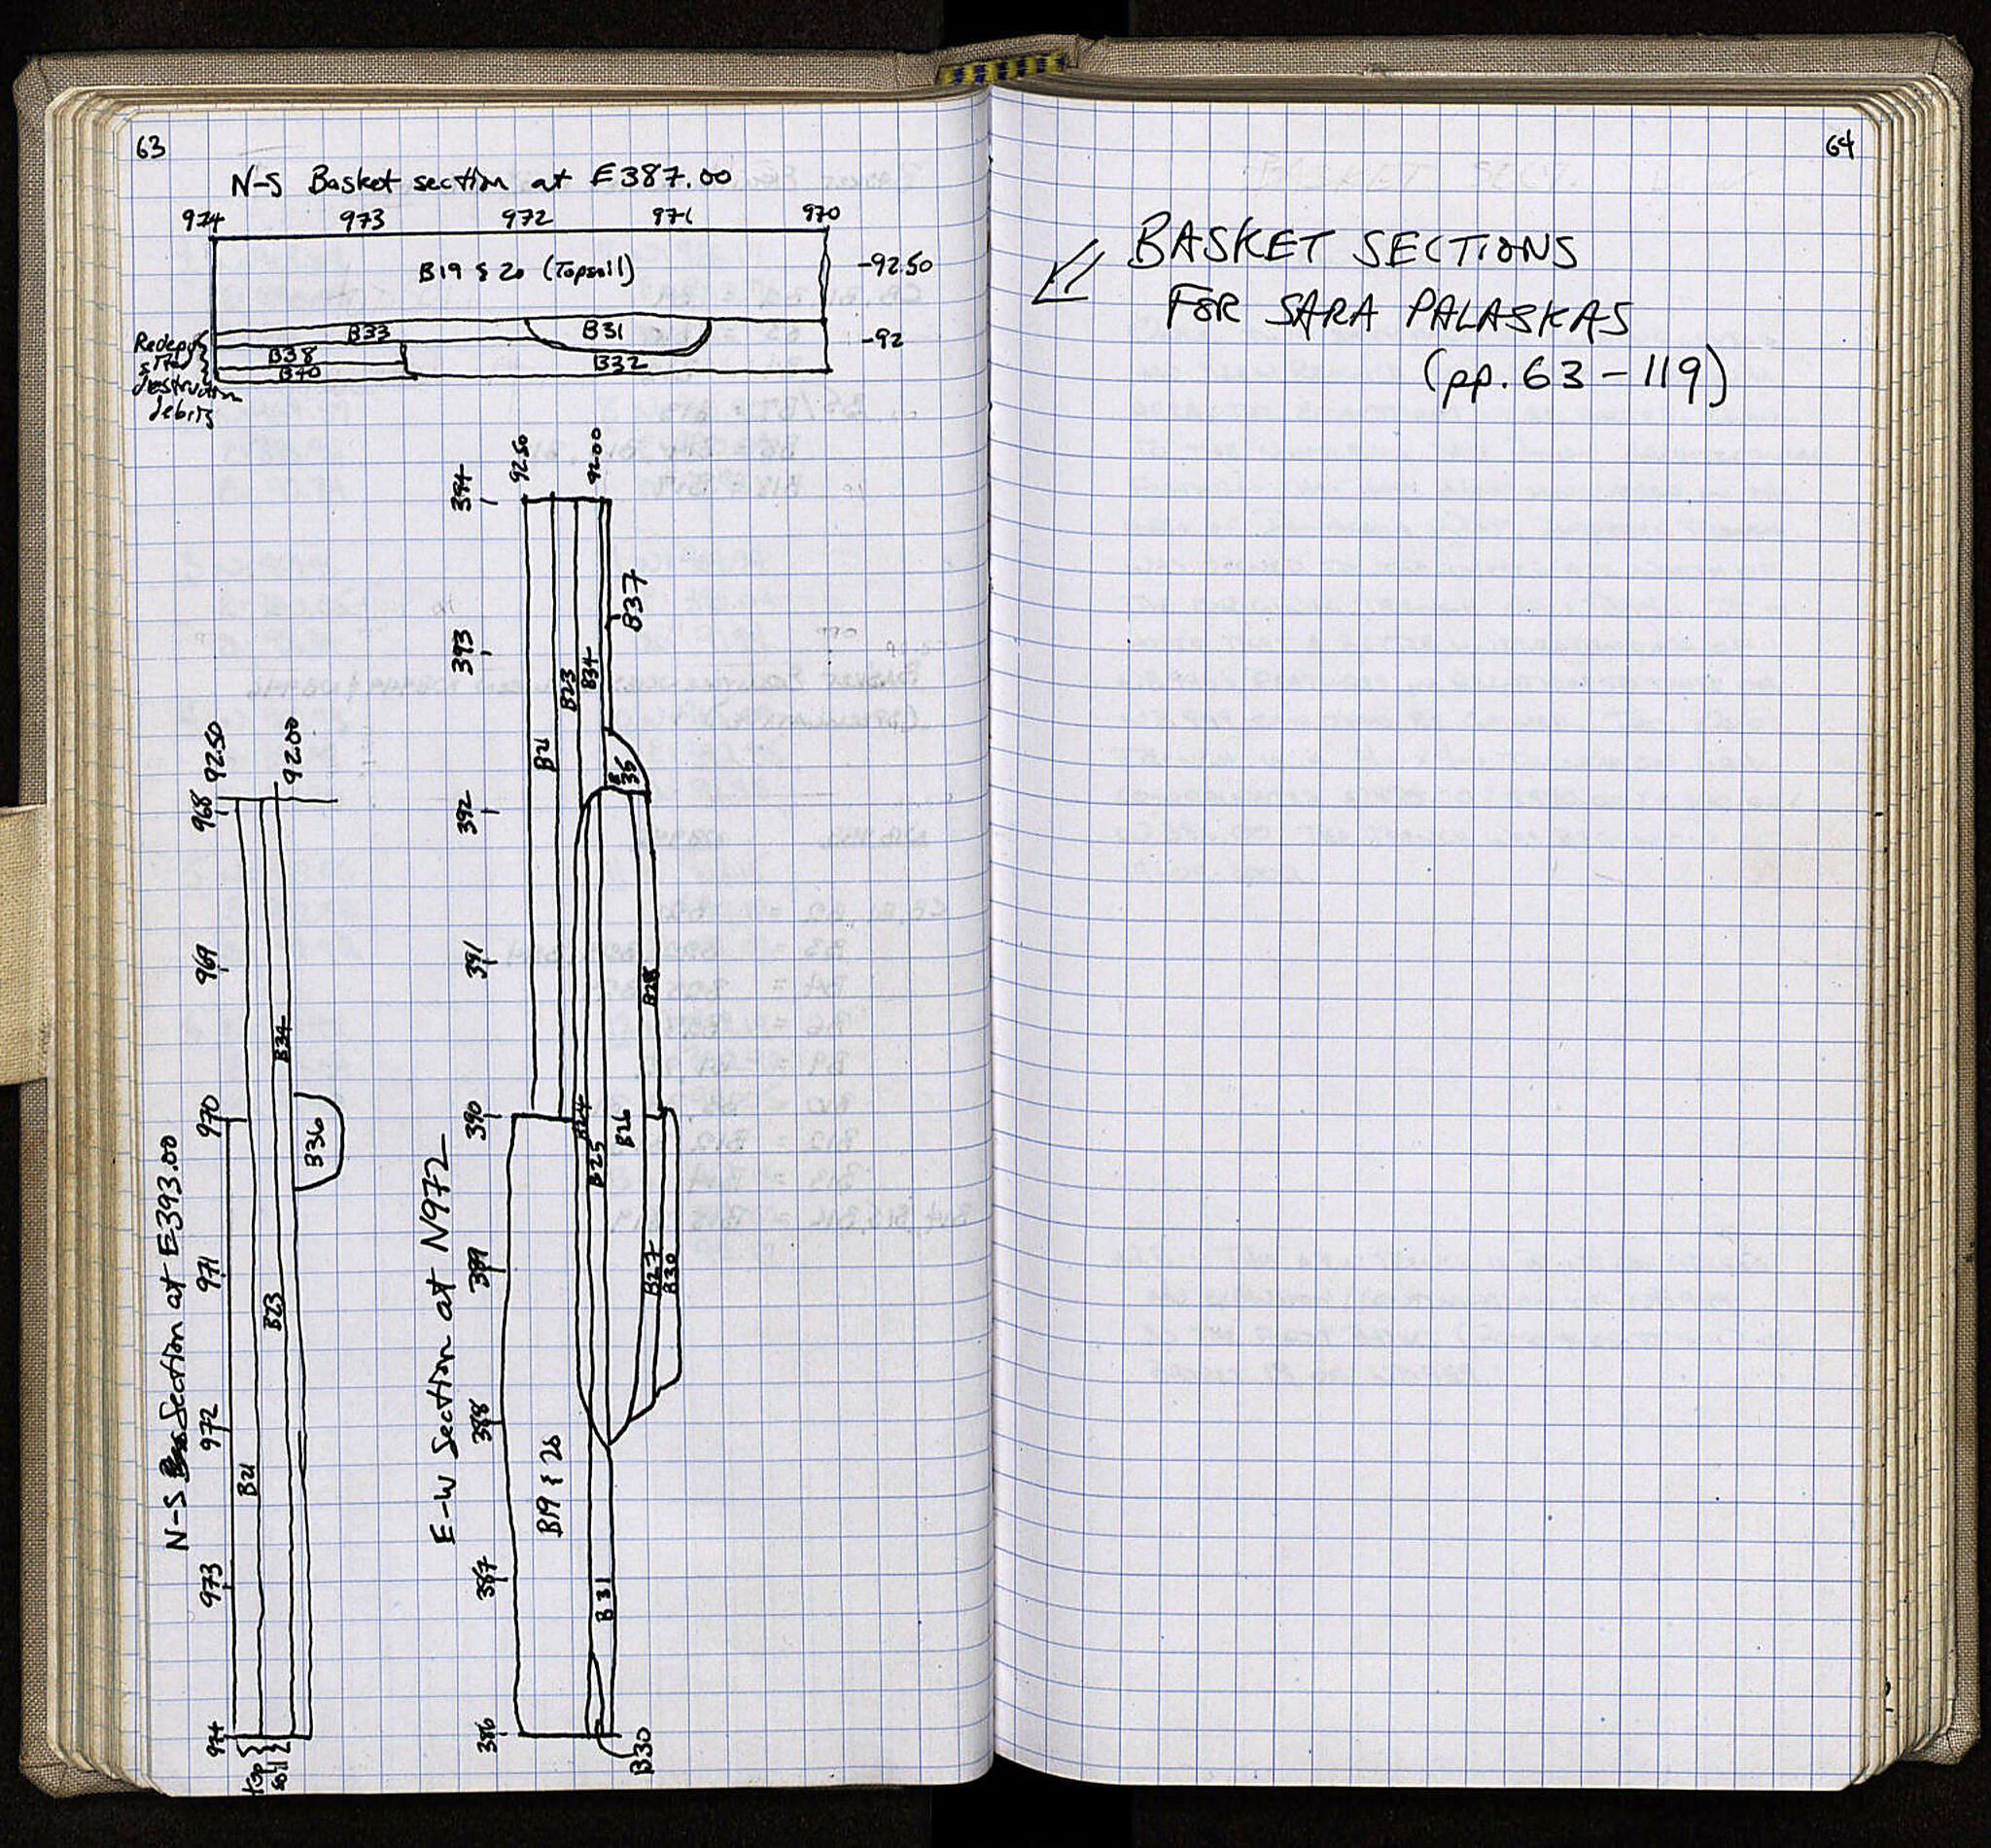 63
N-S Basket section at E387.00
974 973 972 971 970
B19 & 20 (Topsoil)
-92.50
B33
B31
-92
B38
B32
B40
Redepo-
sited
destruction
debris
N-S Section at E393.00
974 973 972 971 970 969 968
92.50
92.00
B21
B23
B34
B36
top
soil
E-W Section at N972
386 387 388 399 390 391 392 393 394
92.50
92.00
B19 & 20
B21
B23
B34
B37
B35
B24
B25
B26
B28
B27
B30
B31
B30
64
BASKET SECTIONS
FOR SARA PALASKAS
(pp. 63-119)